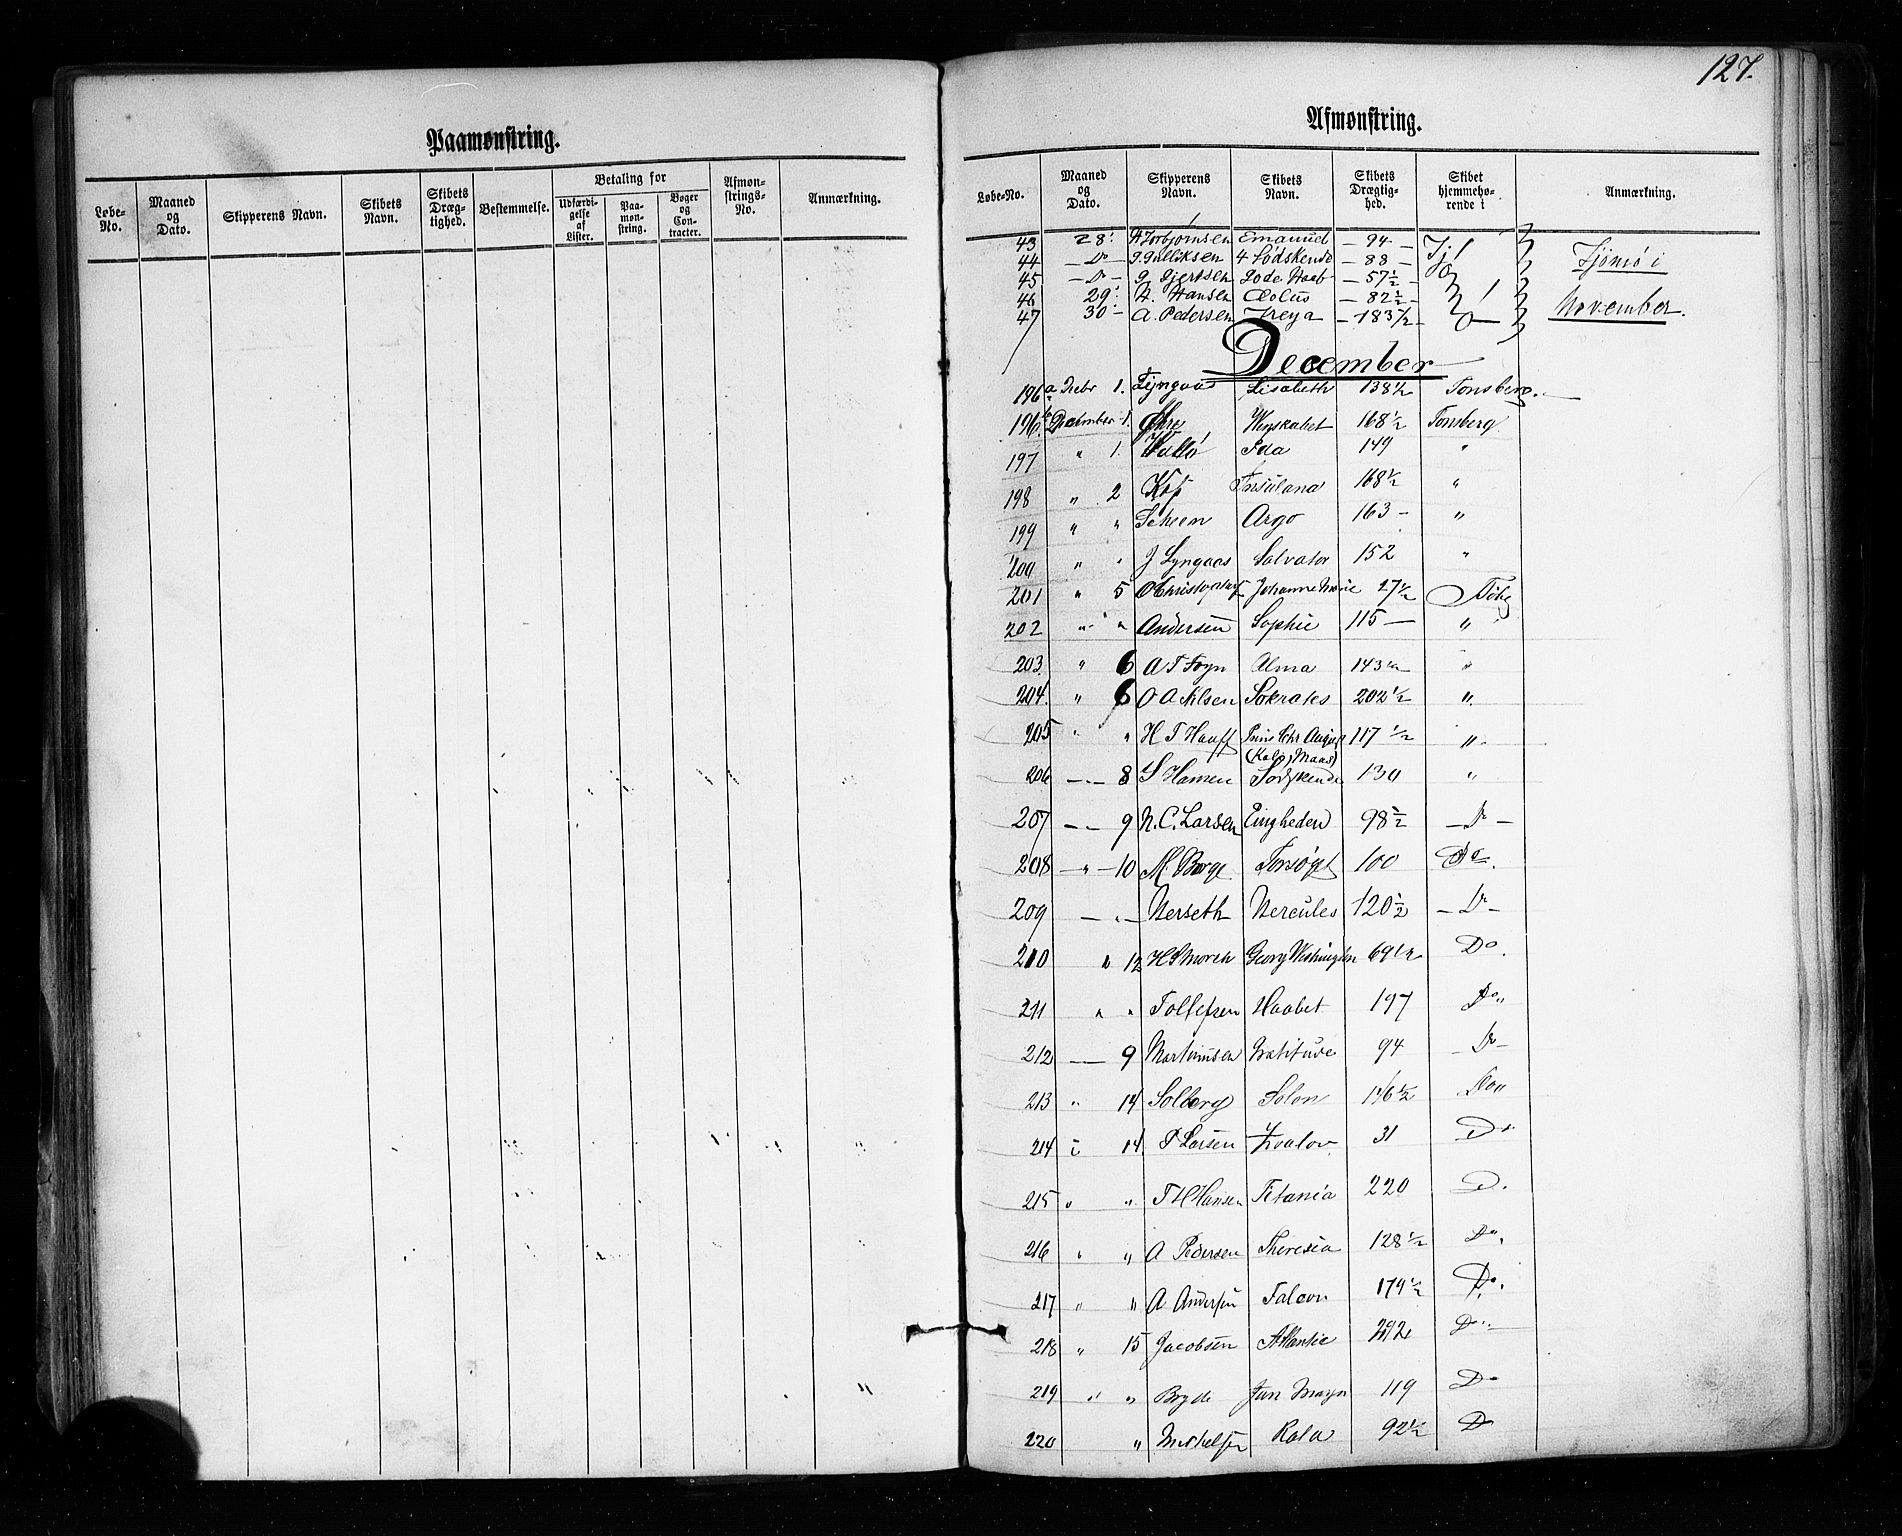 127.
Paamonstring.
Løbe-No. | Maaned og Dato. | Skipperens Navn. | Skibets Navn. | Skibets Dræg-tighed. | Bestemmelse. | Betaling for | Udfærdi-gelse af Lister. | Paa-mon-string. | Bøger og Con-tracter. | Afmøn-strings-No. | Anmærkning.
Afmønstring.
Løbe-No. | Maaned og Dato. | Skipperens Navn. | Skibets Navn. | Skibets Drægtig-hed. | Skibet hjemmehø-rende i | Anmærkning.
43 28 Torbjørnsen Emanuel – 94 –
44 – Do – Gulliksen 4 Sødskende – 88 – Tjømø i
45 – Do – G Gjertsen Gode Haab – 57½ –
46 29 H. Hansen Æolus – 82½ – November.
47 30 – A. Pedersen Freya – 183½
December
196a 1. Lyngaas Lisabeth 138½ Tonsberg.
196b December 1. Venskabet 168½ Tonsberg
197 " 1. Ida 149 "
198 " 2 Insulana 168½ "
199 " " Scheen Argo 163 – "
200 " " J Lyngaas Salvator 152 "
201 " 5 Johanne Marie 27½
202 " " Andersen Sophie 115 – "
203. " 6 A T Foyn Alma 143½ "
204. " 6 O A Nilsen Sokrates 202½ "
205 " " H T Hauff Prins Chr August 117½ "
206 – " – 8 S Hansen Sødskende 130 "
207 – – 9 N. C. Larsen Eenigheden 98½ – Do –
208 – " – 10 M. Borge Forsøget 100 Do.
209 – " – Herseth Hercules 120½ – Do –
210 " 12 Georg Washington 69½ Do.
211 " " Tollefsen Haabet 197 Do"
212 – – 9 Martinusen Gratitude 94 – Do –
213 " 14 Solberg Solon 146½ Do"
214 " 14 P Larsen 31 Do
215 " " T H Hansen Titania 220 Do.
216 " " A Pedersen Theresia 128½ Do.
217 " " A Andersen Falcon 179½ Do.
218 " 15 Jacobsen Atlantic 292 Do
219 " " Bryde Jan Mayn 119 Do
220 " Mikkelsen Rota 92½ Do